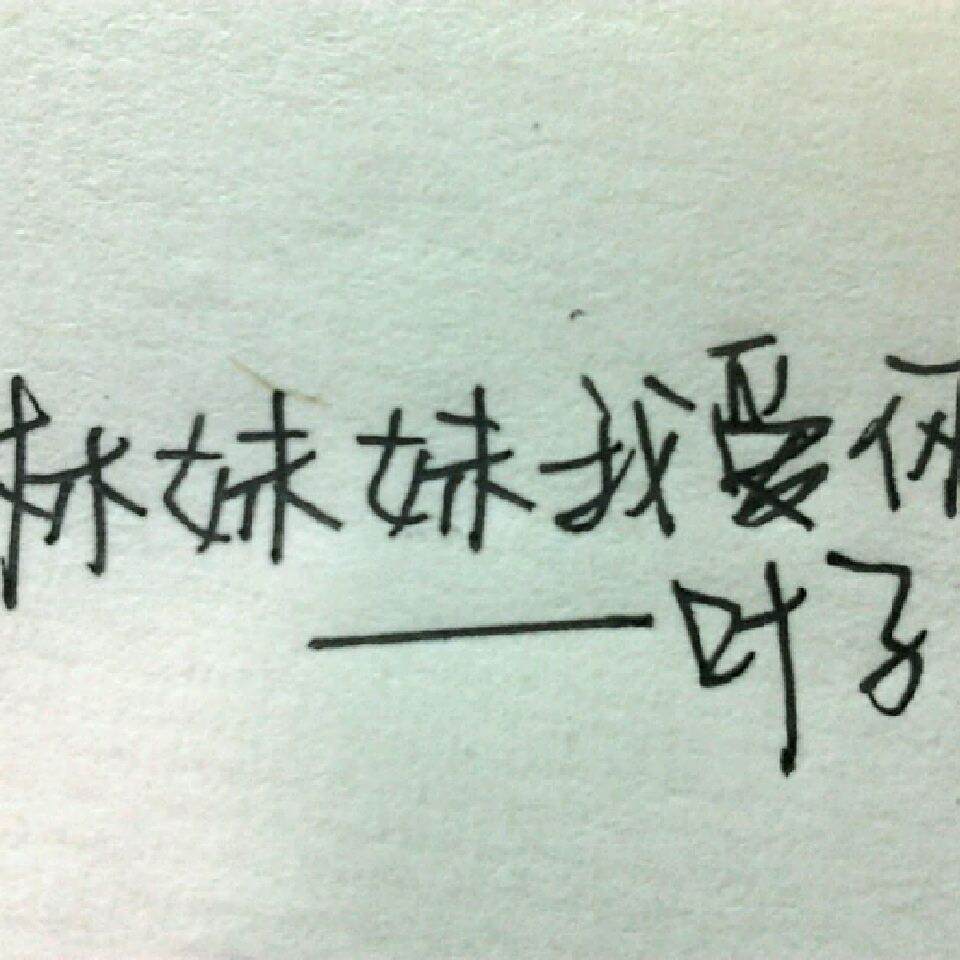 林妹妹我爱你
——叶子